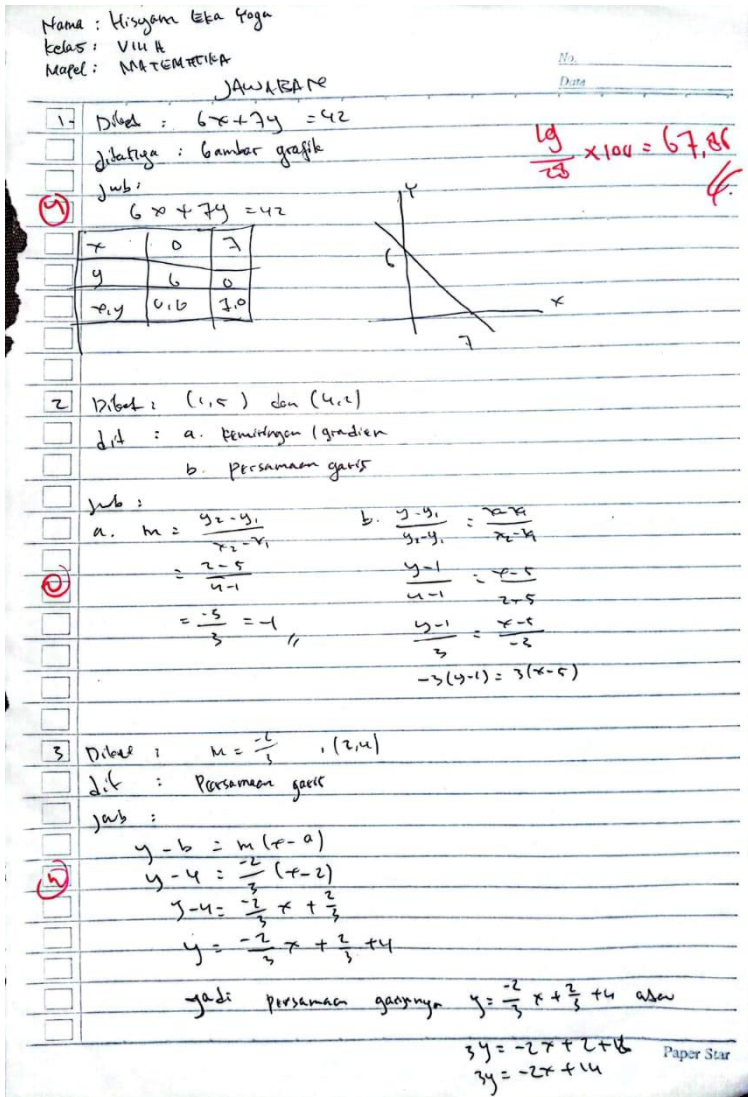 Nama : Hisyam Eka Yoga
Kelas : VIII A
Mapel : MATEMATIKA
No.
Date
JAWABAN
19/28 x 100 = 67,86
1. Diket : 6x + 7y = 42
ditanya : Gambar grafik
Jwb :
4
6x + 7y = 42
x 0 7
y 6 0
x,y 0,6 7,0
Y
6
X
7
2 Diket : (1,5) dan (4,2)
dit : a. kemiringan / gradien
b. persamaan garis
Jwb :
a. m = y2 - y1 / x2 - x1
b. y - y1 / y2 - y1 = x - x1 / x2 - x1
= 2 - 5 / 4 - 1
y - 1 / 4 - 1 = x - 5 / 2 - 5
= -3 / 3 = -1 //
y - 1 / 3 = x - 5 / -3
-3(y-1) = 3(x-5)
3 Diket : m = -2/3 , (2,4)
dit : Persamaan garis
Jwb :
y - b = m (x - a)
y - 4 = -2/3 (x - 2)
y - 4 = -2/3 x + 2/3
y = -2/3 x + 2/3 + 4
Jadi persamaan garisnya y = -2/3 x + 2/3 + 4 atau
3y = -2x + 2 + 12
3y = -2x + 14
Paper Star